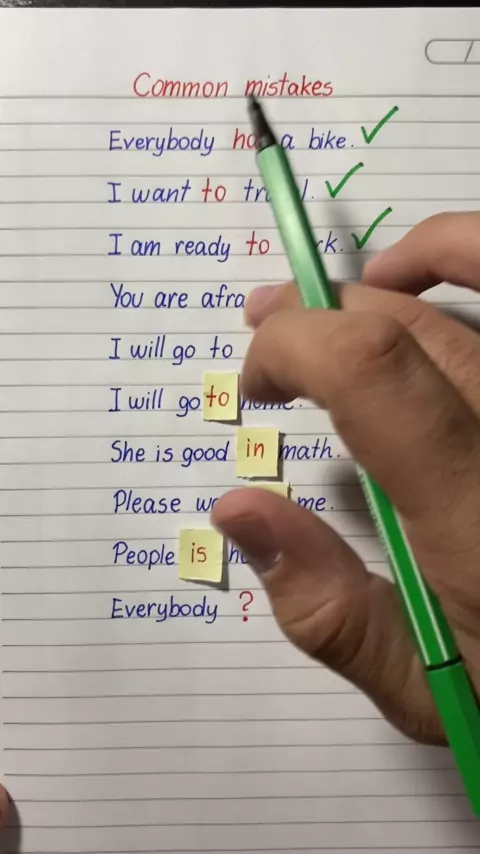 Common mistakes
Everybody a bike.
I want to
I am ready to
You are
I will go to
I will go to home.
She is good in math.
Please me.
People is
Everybody ?